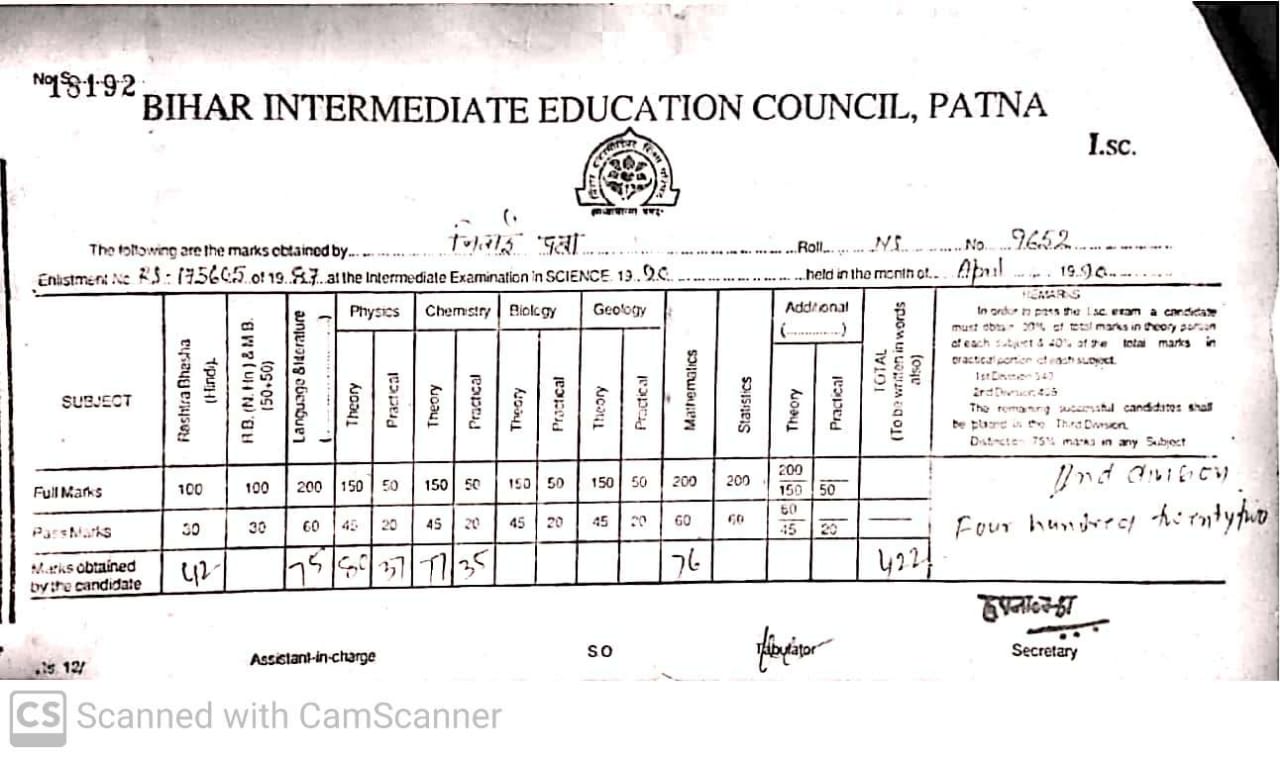 No 18192
BIHAR INTERMEDIATE EDUCATION COUNCIL, PATNA
I.sc.
The following are the marks obtained by Roll NS No. 9652
Enlistment No of 19 87 at the Intermediate Examination in SCIENCE 19 90 held in the month of April 1990
SUBJECT
Rashtra Bhasha (Hindi).
R.B. (N. Hn) & M.B. (50+50)
Language & literature
Physics Theory Practical
Chemistry Theory Practical
Biology Theory Practical
Geology Theory Practical
Mathematics
Statistics
Additional (..............) Theory Practical
TOTAL (To be written in words also)
REMARKS
In order to pass the I.sc. exam a candidate
must obtain 30% of total marks in theory portion
of each subject & 40% of the total marks in
practical portion of each subject.
1st Division 540
2nd Division 405
The remaining successful candidates shall
be placed in the Third Division.
75% marks in any Subject
Full Marks 100 100 200 150 50 150 50 150 50 150 50 200 200 200 150 50
Pass Marks 30 30 60 45 20 45 20 45 20 45 20 60 60 60 45 20
Marks obtained by the candidate 42 75 80 37 77 35 76 422
IInd division
Four hundred twentytwo
Assistant-in-charge SO Tabulator Secretary
CS Scanned with CamScanner